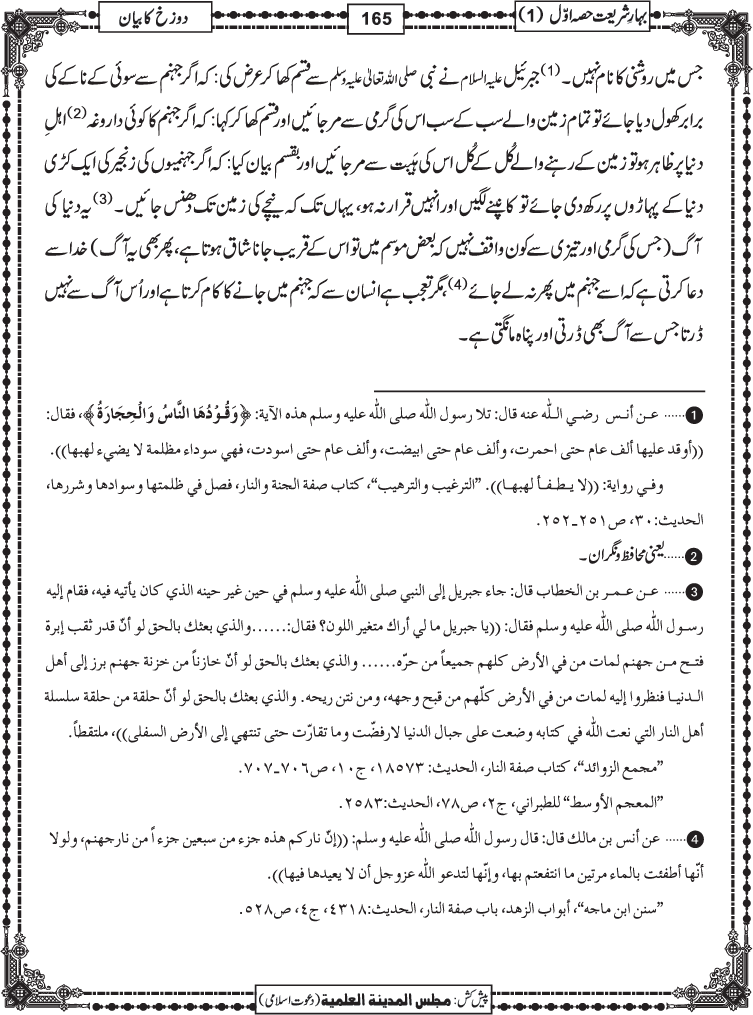 بہارِ شریعت حصہ اوّل (1)
165
دوزخ کا بیان
جس میں روشنی کا نام نہیں۔(1) جبرئیل علیہ السلام نے نبی صلی اللہ تعالیٰ علیہ وسلم سے قسم کھا کر عرض کی: کہ اگر جہنم سے سوئی کے ناکے کی
برابر کھول دیا جائے تو تمام زمین والے سب کے سب اس کی گرمی سے مر جائیں اور قسم کھا کر کہا: کہ اگر جہنم کا کوئی داروغہ(2) اہلِ
دنیا پر ظاہر ہو تو زمین کے رہنے والے کُل کے کُل اس کی ہَیبت سے مر جائیں اور بقسم بیان کیا: کہ اگر جہنمیوں کی زنجیر کی ایک کڑی
دنیا کے پہاڑوں پر رکھ دی جائے تو کانپنے لگیں اور انہیں قرار نہ ہو، یہاں تک کہ نیچے کی زمین تک دھنس جائیں۔(3) یہ دنیا کی
آگ (جس کی گرمی اور تیزی سے کون واقف نہیں کہ بعض موسم میں تو اس کے قریب جانا شاق ہوتا ہے، پھر بھی یہ آگ) خدا سے
دعا کرتی ہے کہ اسے جہنم میں پھر نہ لے جائے(4)، مگر تعجب ہے انسان سے کہ جہنم میں جانے کا کام کرتا ہے اور اُس آگ سے نہیں
ڈرتا جس سے آگ بھی ڈرتی اور پناہ مانگتی ہے۔
1...... عـن أنـس رضـي الـلّٰه عنه قال: تلا رسول اللّٰه صلى اللّٰه عليه وسلم هذه الآية: ﴿وَقُوْدُهَا النَّاسُ وَالْحِجَارَةُ﴾، فقال:
((أوقد عليها ألف عام حتى احمرت، وألف عام حتى ابيضت، وألف عام حتى اسودت، فهي سوداء مظلمة لا يضيء لهبها)).
وفـي رواية: ((لا يـطـفـأ لهبهـا)). ”الترغيب والترهيب“، كتاب صفة الجنة والنار، فصل في ظلمتها وسوادها وشررها،
الحديث:٣٠، ص٢٥١ـ٢٥٢.
2...... یعنی محافظ و نگران۔
3...... عـن عـمـر بن الخطاب قال: جاء جبريل إلى النبي صلى اللّٰه عليه وسلم في حين غير حينه الذي كان يأتيه فيه، فقام إليه
رسـول اللّٰه صلى اللّٰه عليه وسلم فقال: ((يا جبريل ما لي أراك متغير اللون؟ فقال:......والذي بعثك بالحق لو أنّ قدر ثقب إبرة
فتـح مـن جهنم لمات من في الأرض كلهم جميعاً من حرّه...... والذي بعثك بالحق لو أنّ خازناً من خزنة جهنم برز إلى أهل
الـدنيـا فنظروا إليه لمات من في الأرض كلّهم من قبح وجهه، ومن نتن ريحه. والذي بعثك بالحق لو أنّ حلقة من حلقة سلسلة
أهل النار التي نعت اللّٰه في كتابه وضعت على جبال الدنيا لارفضّت وما تقارّت حتى تنتهي إلى الأرض السفلى))، ملتقطاً.
”مجمع الزوائد“، كتاب صفة النار، الحديث: ١٨٥٧٣، ج١٠، ص٧٠٦ـ٧٠٧.
”المعجم الأوسط“ للطبراني، ج٢، ص٧٨، الحديث:٢٥٨٣.
4...... عن أنس بن مالك قال: قال رسول اللّٰه صلى اللّٰه عليه وسلم: ((إنّ ناركم هذه جزء من سبعين جزءاً من نار جهنم، ولولا
أنّها أطفئت بالماء مرتين ما انتفعتم بها، وإنّها لتدعو اللّٰه عزوجل أن لا يعيدها فيها)).
”سنن ابن ماجه“، أبواب الزهد، باب صفة النار، الحديث:٤٣١٨، ج٤، ص٥٢٨.
پیش کش: مجلس المدینۃ العلمیۃ (دعوت اسلامی)